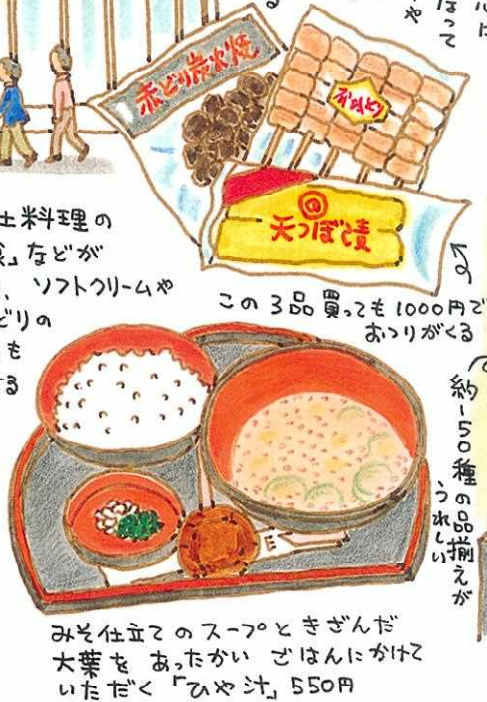 赤どり炭火焼
天つぼ漬
土料理の
」などが
、ソフトクリームや
どりの
も
る
この3品買っても1000円で
おつりがくる
約150種の品揃えが
うれしい
みそ仕立てのスープときざんだ
大葉を あったかい ごはんにかけて
いただく「ひや汁」550円